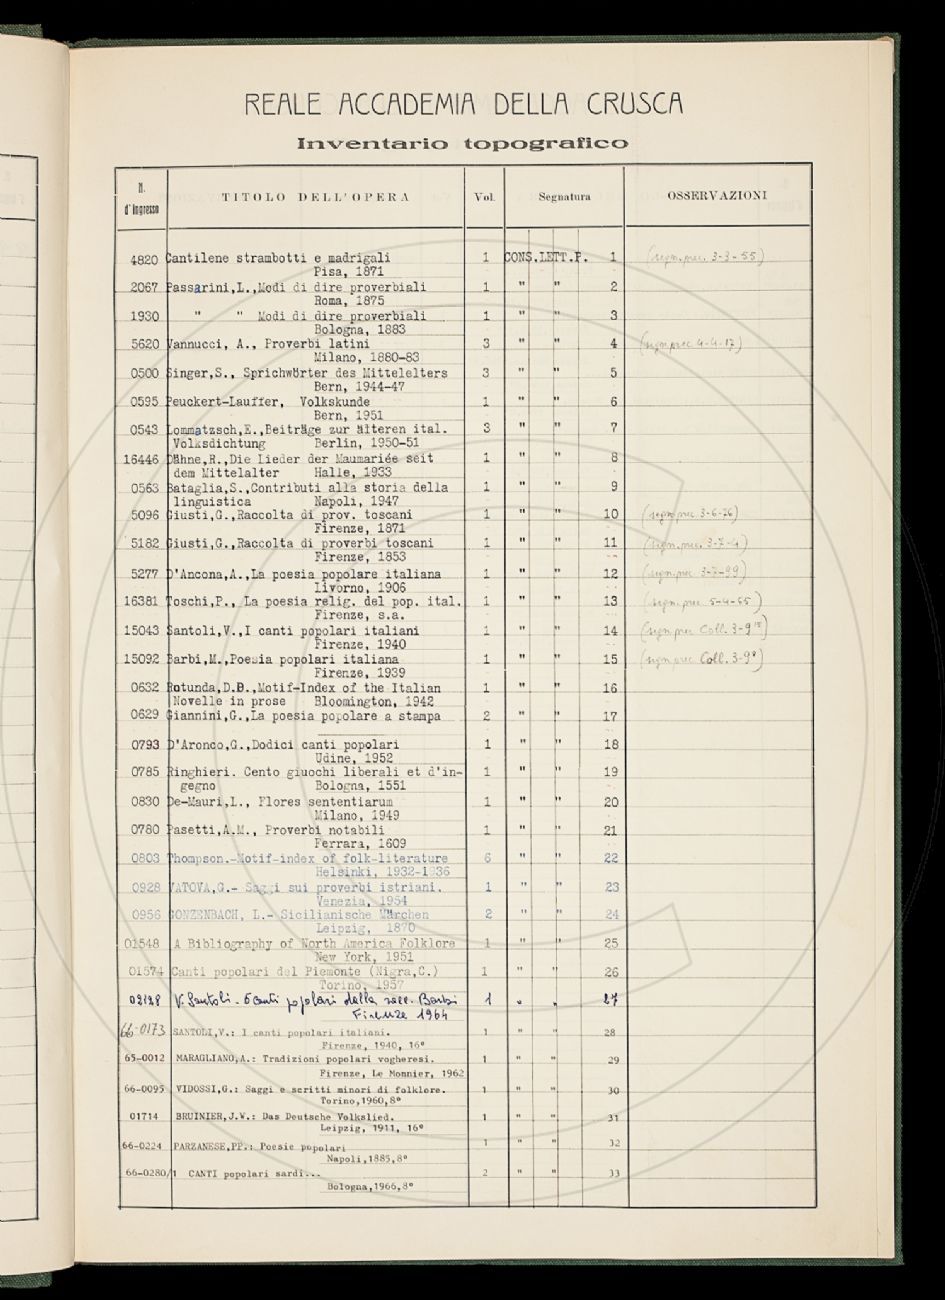 REALE ACCADEMIA DELLA CRUSCA
Inventario topografico
N. d'ingresso TITOLO DELL'OPERA Vol. Segnatura OSSERVAZIONI
4820 Cantilene strambotti e madrigali 1 CONS.LETT.P. 1 (segn. prec. 3-3-55)
Pisa, 1871
2067 Passarini,L.,Modi di dire proverbiali 1 " " 2
Roma, 1875
1930 " " Modi di dire proverbiali 1 " " 3
Bologna, 1883
5620 Vannucci, A., Proverbi latini 3 " " 4 (segn prec 4-4-17)
Milano, 1880-83
0500 Singer,S., Sprichwörter des Mittelelters 3 " " 5
Bern, 1944-47
0595 Peuckert-Lauffer, Volkskunde 1 " " 6
Bern, 1951
0543 Lommatzsch,E.,Beiträge zur älteren ital. 3 " " 7
Volksdichtung Berlin, 1950-51
16446 Dähne,R.,Die Lieder der Maumariée seit 1 " " 8
dem Mittelalter Halle, 1933
0563 Bataglia,S.,Contributi alla storia della 1 " " 9
linguistica Napoli, 1947
5096 Giusti,G.,Raccolta di prov. toscani 1 " " 10 (segn. prec. 3-6-26)
Firenze, 1871
5182 Giusti,G.,Raccolta di proverbi toscani 1 " " 11 (segn. prec. 3-7-4)
Firenze, 1853
5277 D'Ancona,A.,La poesia popolare italiana 1 " " 12 (segn. prec 3-7-99)
Livorno, 1906
16381 Toschi,P., La poesia relig. del pop. ital. 1 " " 13 (segn. prec 5-4-55)
Firenze, s.a.
15043 Santoli,V.,I canti popolari italiani 1 " " 14 (segn prec Coll. 3-9
Firenze, 1940
15092 Barbi,M.,Poesia popolari italiana 1 " " 15 (segn prec Coll. 3-9
Firenze, 1939
0632 Rotunda,D.B.,Motif-Index of the Italian 1 " " 16
Novelle in prose Bloomington, 1942
0629 Giannini,G.,La poesia popolare a stampa 2 " " 17
0793 D'Aronco,G.,Dodici canti popolari 1 " " 18
Udine, 1952
0785 Ringhieri. Cento giuochi liberali et d'in- 1 " " 19
gegno Bologna, 1551
0830 De-Mauri,L., Flores sententiarum 1 " " 20
Milano, 1949
0780 Pasetti,A.M., Proverbi notabili 1 " " 21
Ferrara, 1609
0803 Thompson.-Motif-index of folk-literature 6 " " 22
Helsinki, 1932-1936
0928 VATOVA,G.- Saggi sui proverbi istriani. 1 " " 23
Venezia, 1954
0956 GONZENBACH, L.- Sicilianische Märchen 2 " " 24
Leipzig, 1870
01548 A Bibliography of North America Folklore 1 " " 25
New York, 1951
01574 Canti popolari del Piemonte (Nigra,C.) 1 " " 26
Torino, 1957
V. Santoli - 5 canti popolari della racc. Barbi 1 " " 27
Firenze 1964
66-0173 SANTOLI,V.: I canti popolari italiani. 1 " " 28
Firenze, 1940, 16°
65-0012 MARAGLIANO,A.: Tradizioni popolari vogheresi. 1 " " 29
Firenze, Le Monnier, 1962
66-0095 VIDOSSI,G.: Saggi e scritti minori di folklore. 1 " " 30
Torino,1960,8°
01714 BRUINIER,J.W.: Das Deutsche Volkslied. 1 " " 31
Leipzig, 1911, 16°
66-0224 PARZANESE,PP.: Poesie popolari 1 " " 32
Napoli,1885,8°
66-0280/1 CANTI popolari sardi... 2 " " 33
Bologna,1966,8°